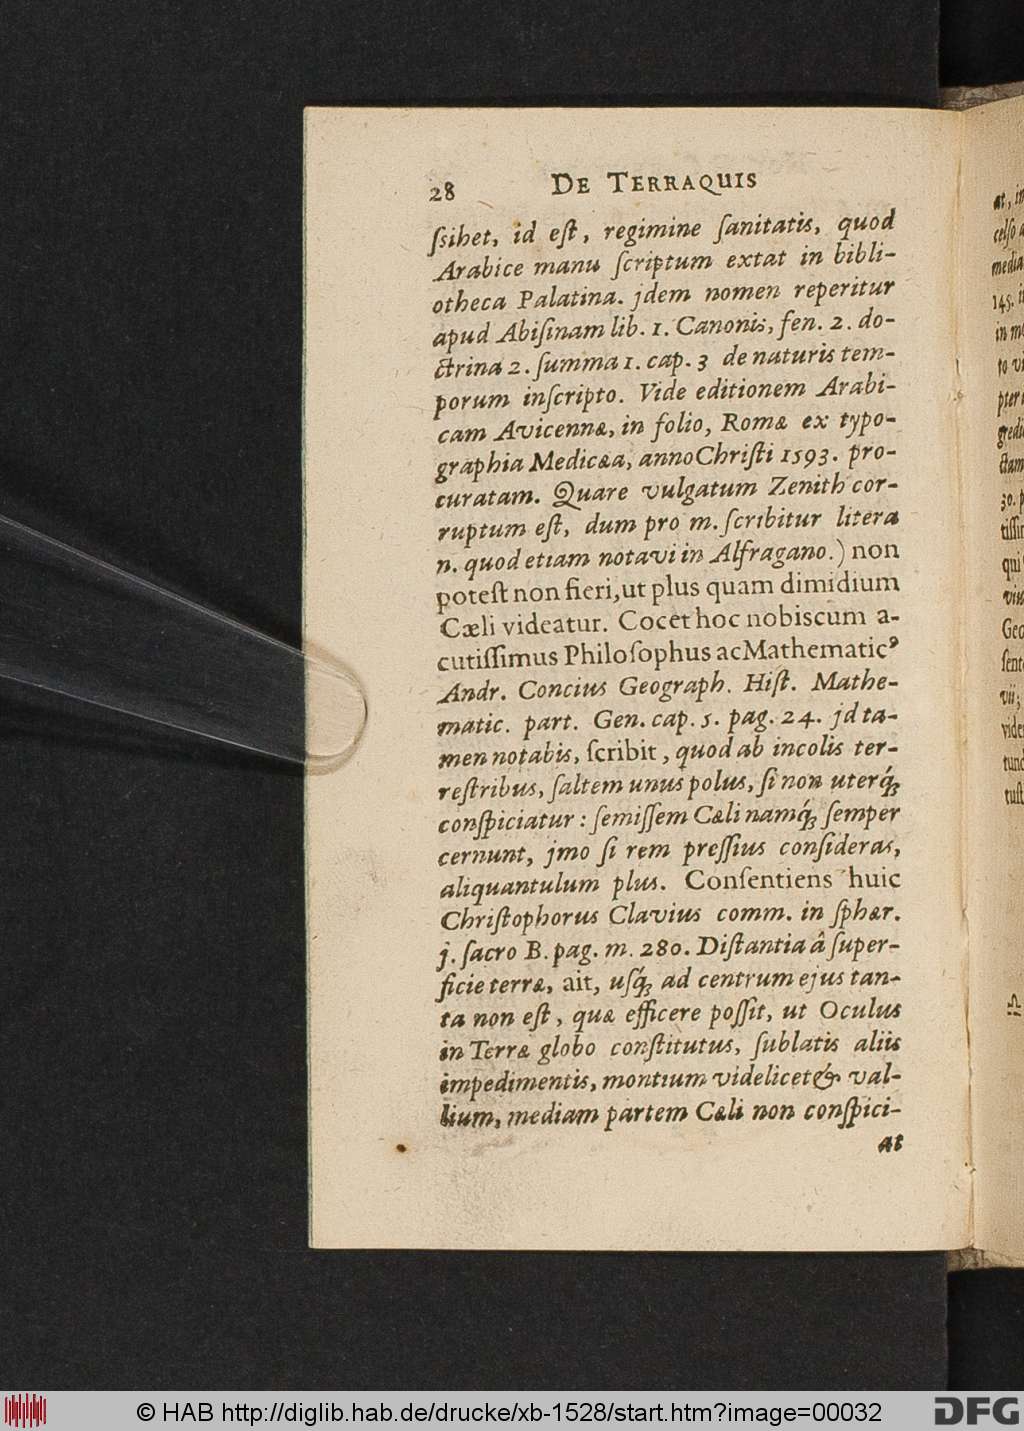 28 DE TERRAQUIS
ſsihet, id eſt, regimine ſanitatis, quod
Arabice manu ſcriptum extat in bibli-
otheca Palatina. jdem nomen reperitur
apud Abiſinam lib. 1. Canonis, fen. 2. do-
ctrina 2. ſumma 1. cap. 3 de naturis tem-
porum inſcripto. Vide editionem Arabi-
cam Avicennæ, in folio, Romæ ex typo-
graphia Medicæa, anno Chriſti 1593. pro-
curatam. Quare vulgatum Zenith cor-
ruptum eſt, dum pro m. ſcribitur litera
n. quod etiam notavi in Alfragano.) non
poteſt non fieri, ut plus quam dimidium
Cæli videatur. Cocet hoc nobiscum a-
cutiſſimus Philoſophus ac Mathematicꝰ
Andr. Concius Geograph. Hiſt. Mathe-
matic. part. Gen. cap. 5. pag. 24. jd ta-
men notabis, ſcribit, quod ab incolis ter-
reſtribus, ſaltem unus polus, ſi non uterq́ꝫ
conſpiciatur: ſemiſſem Cæli namq́ꝫ ſemper
cernunt, jmo ſi rem preſſius conſideras,
aliquantulum plus. Conſentiens huic
Chriſtophorus Clavius comm. in ſphær.
j. ſacro B. pag. m. 280. Diſtantia â ſuper-
ficie terræ, ait, uſq́ꝫ ad centrum ejus tan-
ta non eſt, quæ efficere poſſit, ut Oculus
in Terræ globo conſtitutus, ſublatis aliis
impedimentis, montium videlicet & val-
lium, mediam partem Cæli non conſpici-
at
at, in
celſo a
media
145. i
in me
to vi
pter
gredi
ctam
30. p
tiſſi
qui
vius
Geo
ſent
vij;
vide
tunc
tuſt
© HAB http://diglib.hab.de/drucke/xb-1528/start.htm?image=00032
DFG